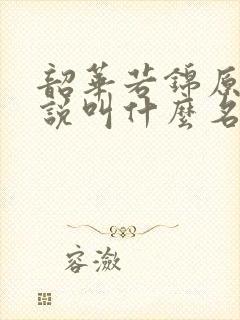 韶華若錦原
說叫什麼名
容瀲